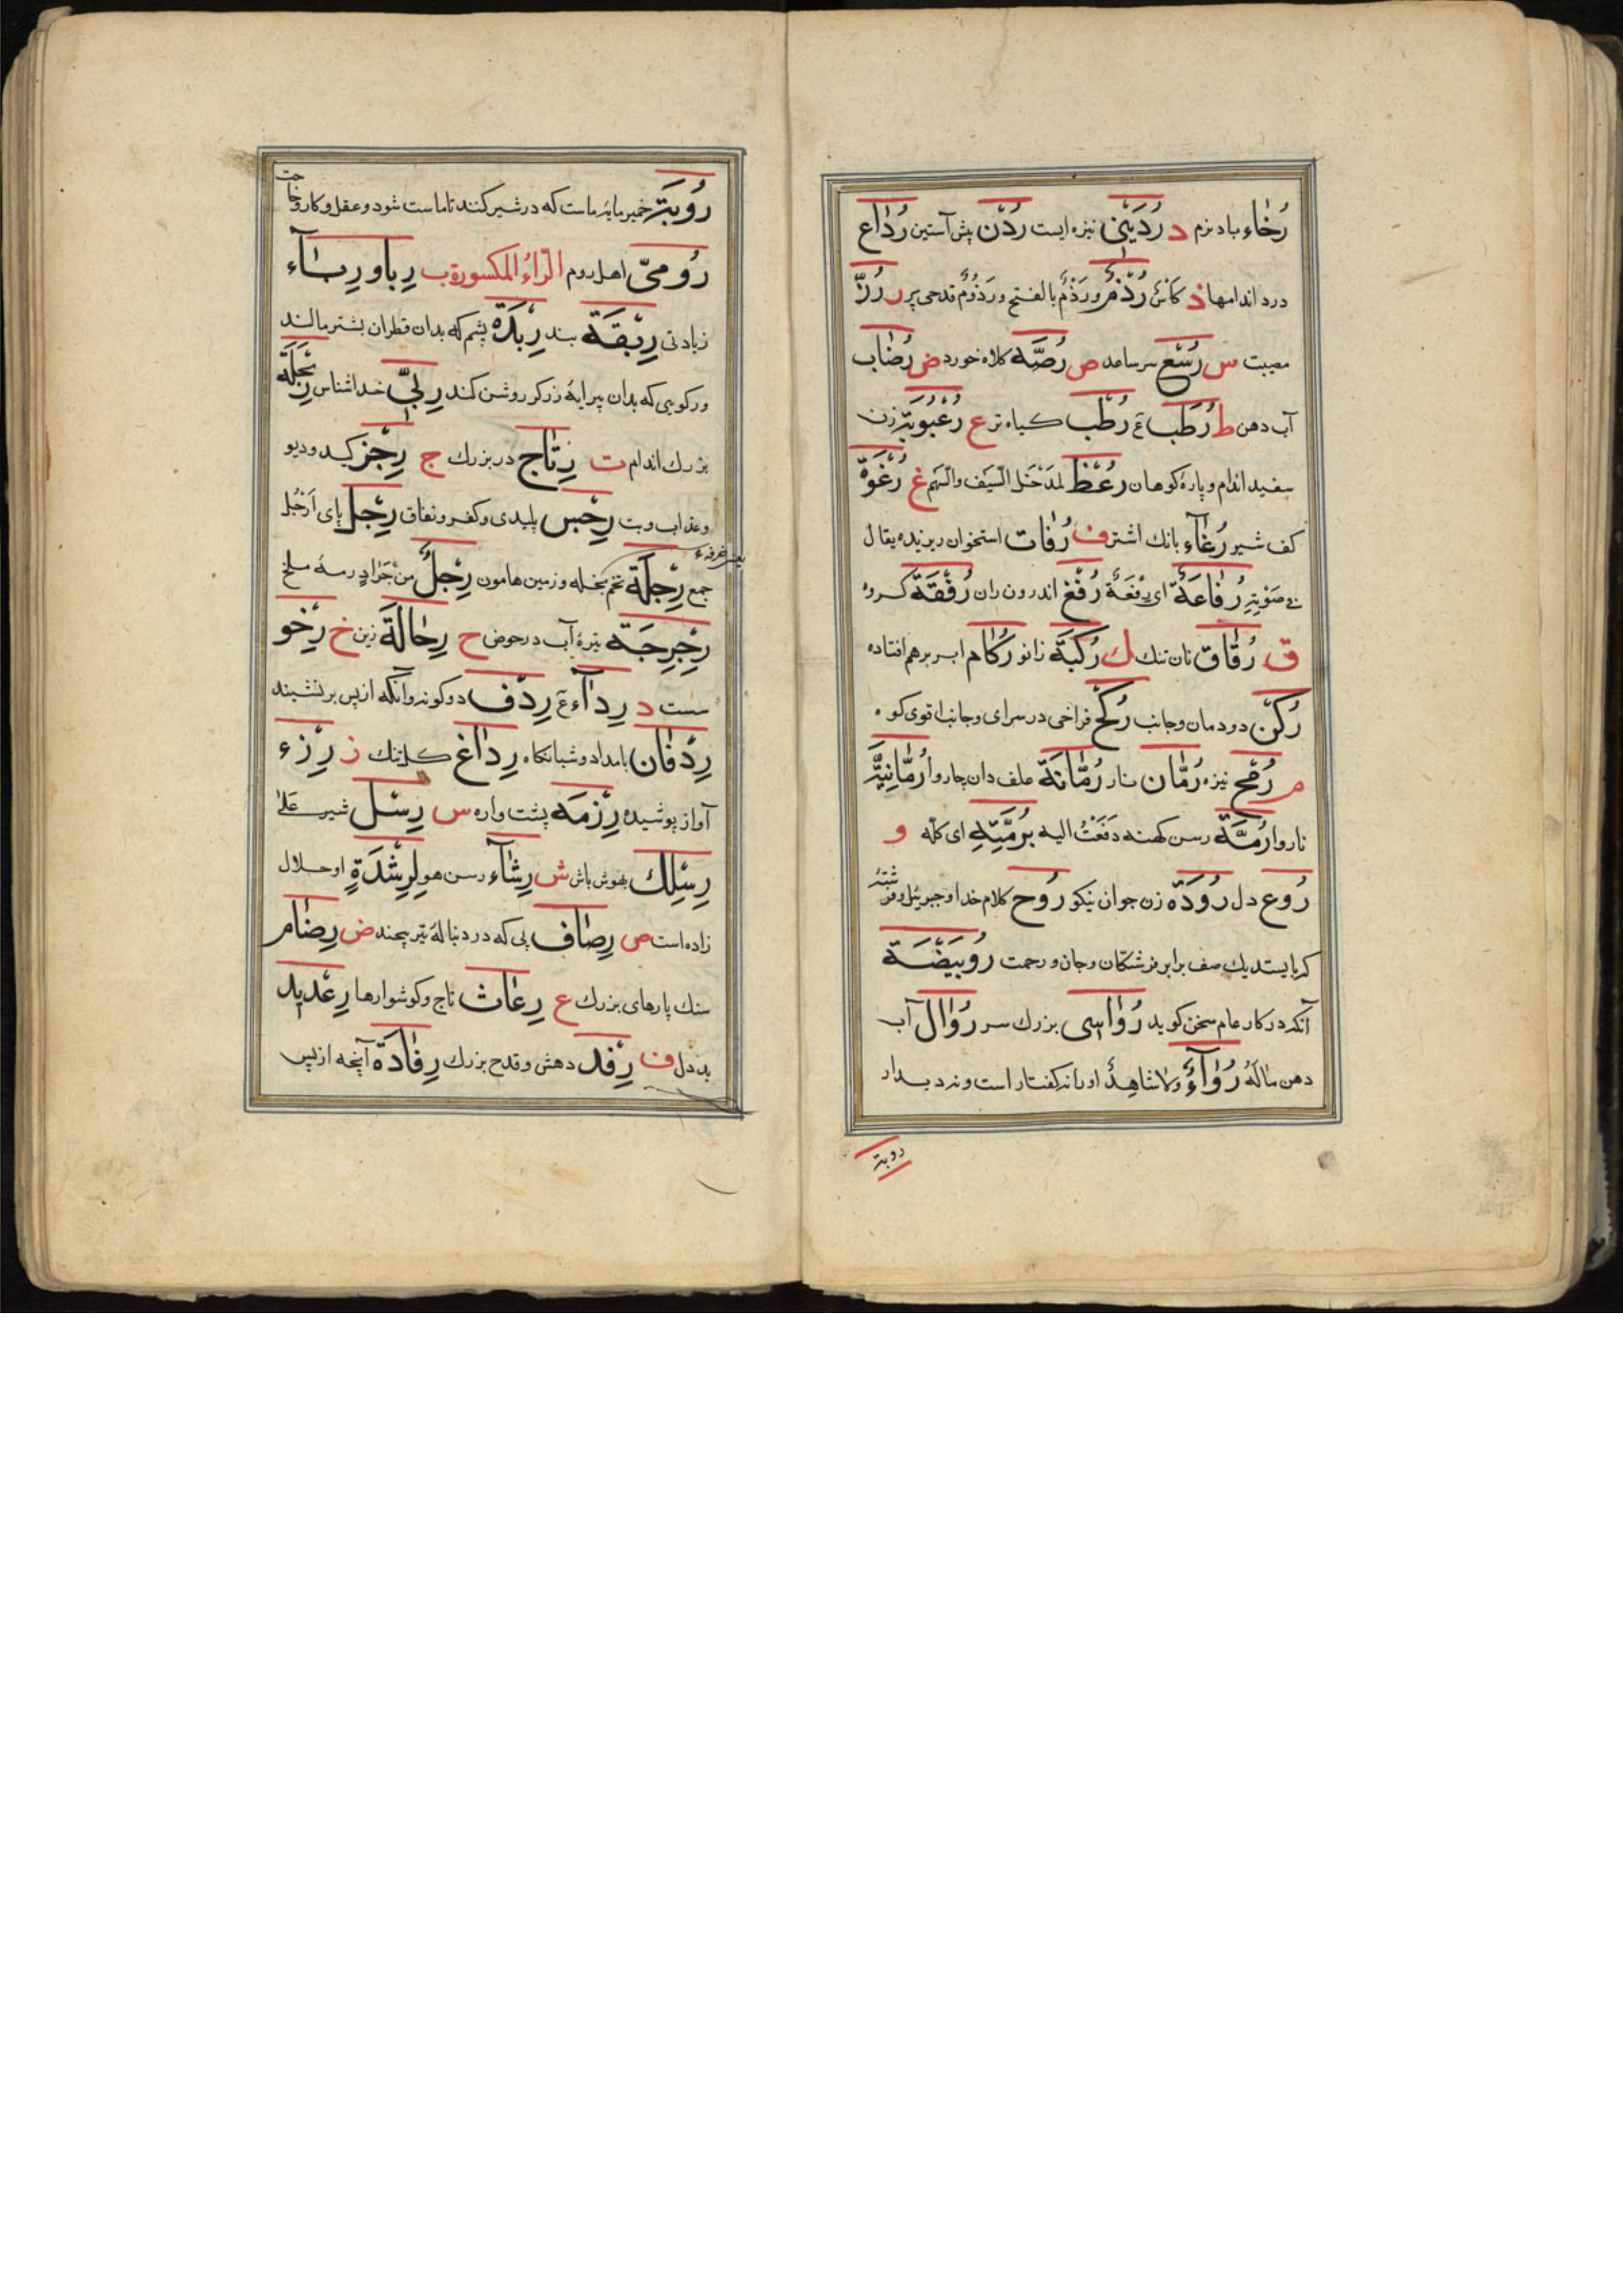 رُخَاء باد نرم د رُدَیْنی نیزه ایست رُدْن پش آستین رُدَاع
درد اندامها ذ کَاسٌ رُذُمٌ ورَذَمٌ بالفتح ورَذُومٌ قدحی پر ر رُزّ
مصیبت س رُسْغ سر ساعد ص رُصَّه کلاه خورد ض رُضَاب
آب دهن ط رُطَب ع رُطْب کیاه تر ع رُعْبُوبَة زن
سفید اندام و پارهٔ کوهان رُعْظ لمَدْخَل السّیف والسّهم غ رُغْوَة
کف شیر رُغَآء بانك اشتر ف رُفَات استخوان ریزیده یقال
فی صَوْتِه رُفَاعَةٌ ای رِفْعَةٌ رُفْغ اندرون ران رُفْقَة کروه
ق رُقَاق نان تنك ك رُکْبَة زانو رُکَام ابر برهم افتاده
رُکْن دودمان وجانب رُکْح فراخی در سرای وجانب اقوی کوه
م رُمْح نیزه رُمَّان نار رُمَّانَة علف دان چاروا رُمَّانِیَّة
ناروا رُمَّة رسن کهنه دَفَعْتُ الیه بِرُمَّتِهِ ای کلّه و
رُوع دل رُودَة زن جوان نیکو رُوح کلام خدا و جبریئل و فرشتهٔ
که بایستد یك صف برابر فرشتکان وجان و رحمت رُوَیْبِضَة
آنکه در کار عام سخن کوید رُوَاسی بزرك سر رُوَال آب
دهن مَا لَهُ رُوَآءٌ ولا شَاهِدٌ او را نه کفتار است ونه دیدار
روبة
رُوبَة خمیر مایهٔ ماست که در شیر کنند تا ماست شود وعقل وکار وحاجت
رُومیّ اهل روم الرّاءُ المکسورة ب رِبا و رِبَآء
زیادتی رِبْقَة بند رِبْدَة پشم که بدان قطران بشتر مالند
ورکویی که بدان پیرایهٔ زرکر روشن کند رِبِّیّ خداشناس رِبَحْلَة
بزرك اندام ت رِتَاج در بزرك ج رِجْز کید ودیو
وعذاب وبت رِجْس پلیدی وکفر ونفاق رِجْل پای اَرْجُل
یعنی خرفه
جمع رِجْلَة تخم بخله وزمین هامون رِجْلٌ من جَرَادٍ رمهٔ ملخ
رِجْرِجَة تیرهٔ آب در حوض ح رِحَالَة زین خ رِخْو
سست د رِدَآء ع رِدْف دوکونه وآنکه از پس برنشیند
رِدْفَان بامداد وشبانکاه رِدَاغ کل تنك ز رِزء
آواز پوشیده رِزْمَه پشت واره س رِسْل شیر عَلَی
رِسْلِك بهوش باش ش رِشَآء رسن هو لِرِشْدَةٍ او حلال
زاده است ص رِصَاف پی که در دنبالهٔ تیر پیچند ض رِضَام
سنك پارهای بزرك ع رِعَاث تاج وکوشوارها رِعْدِید
بددل ف رِفْد دهش وقدح بزرك رِفَادَة آنچه از پس